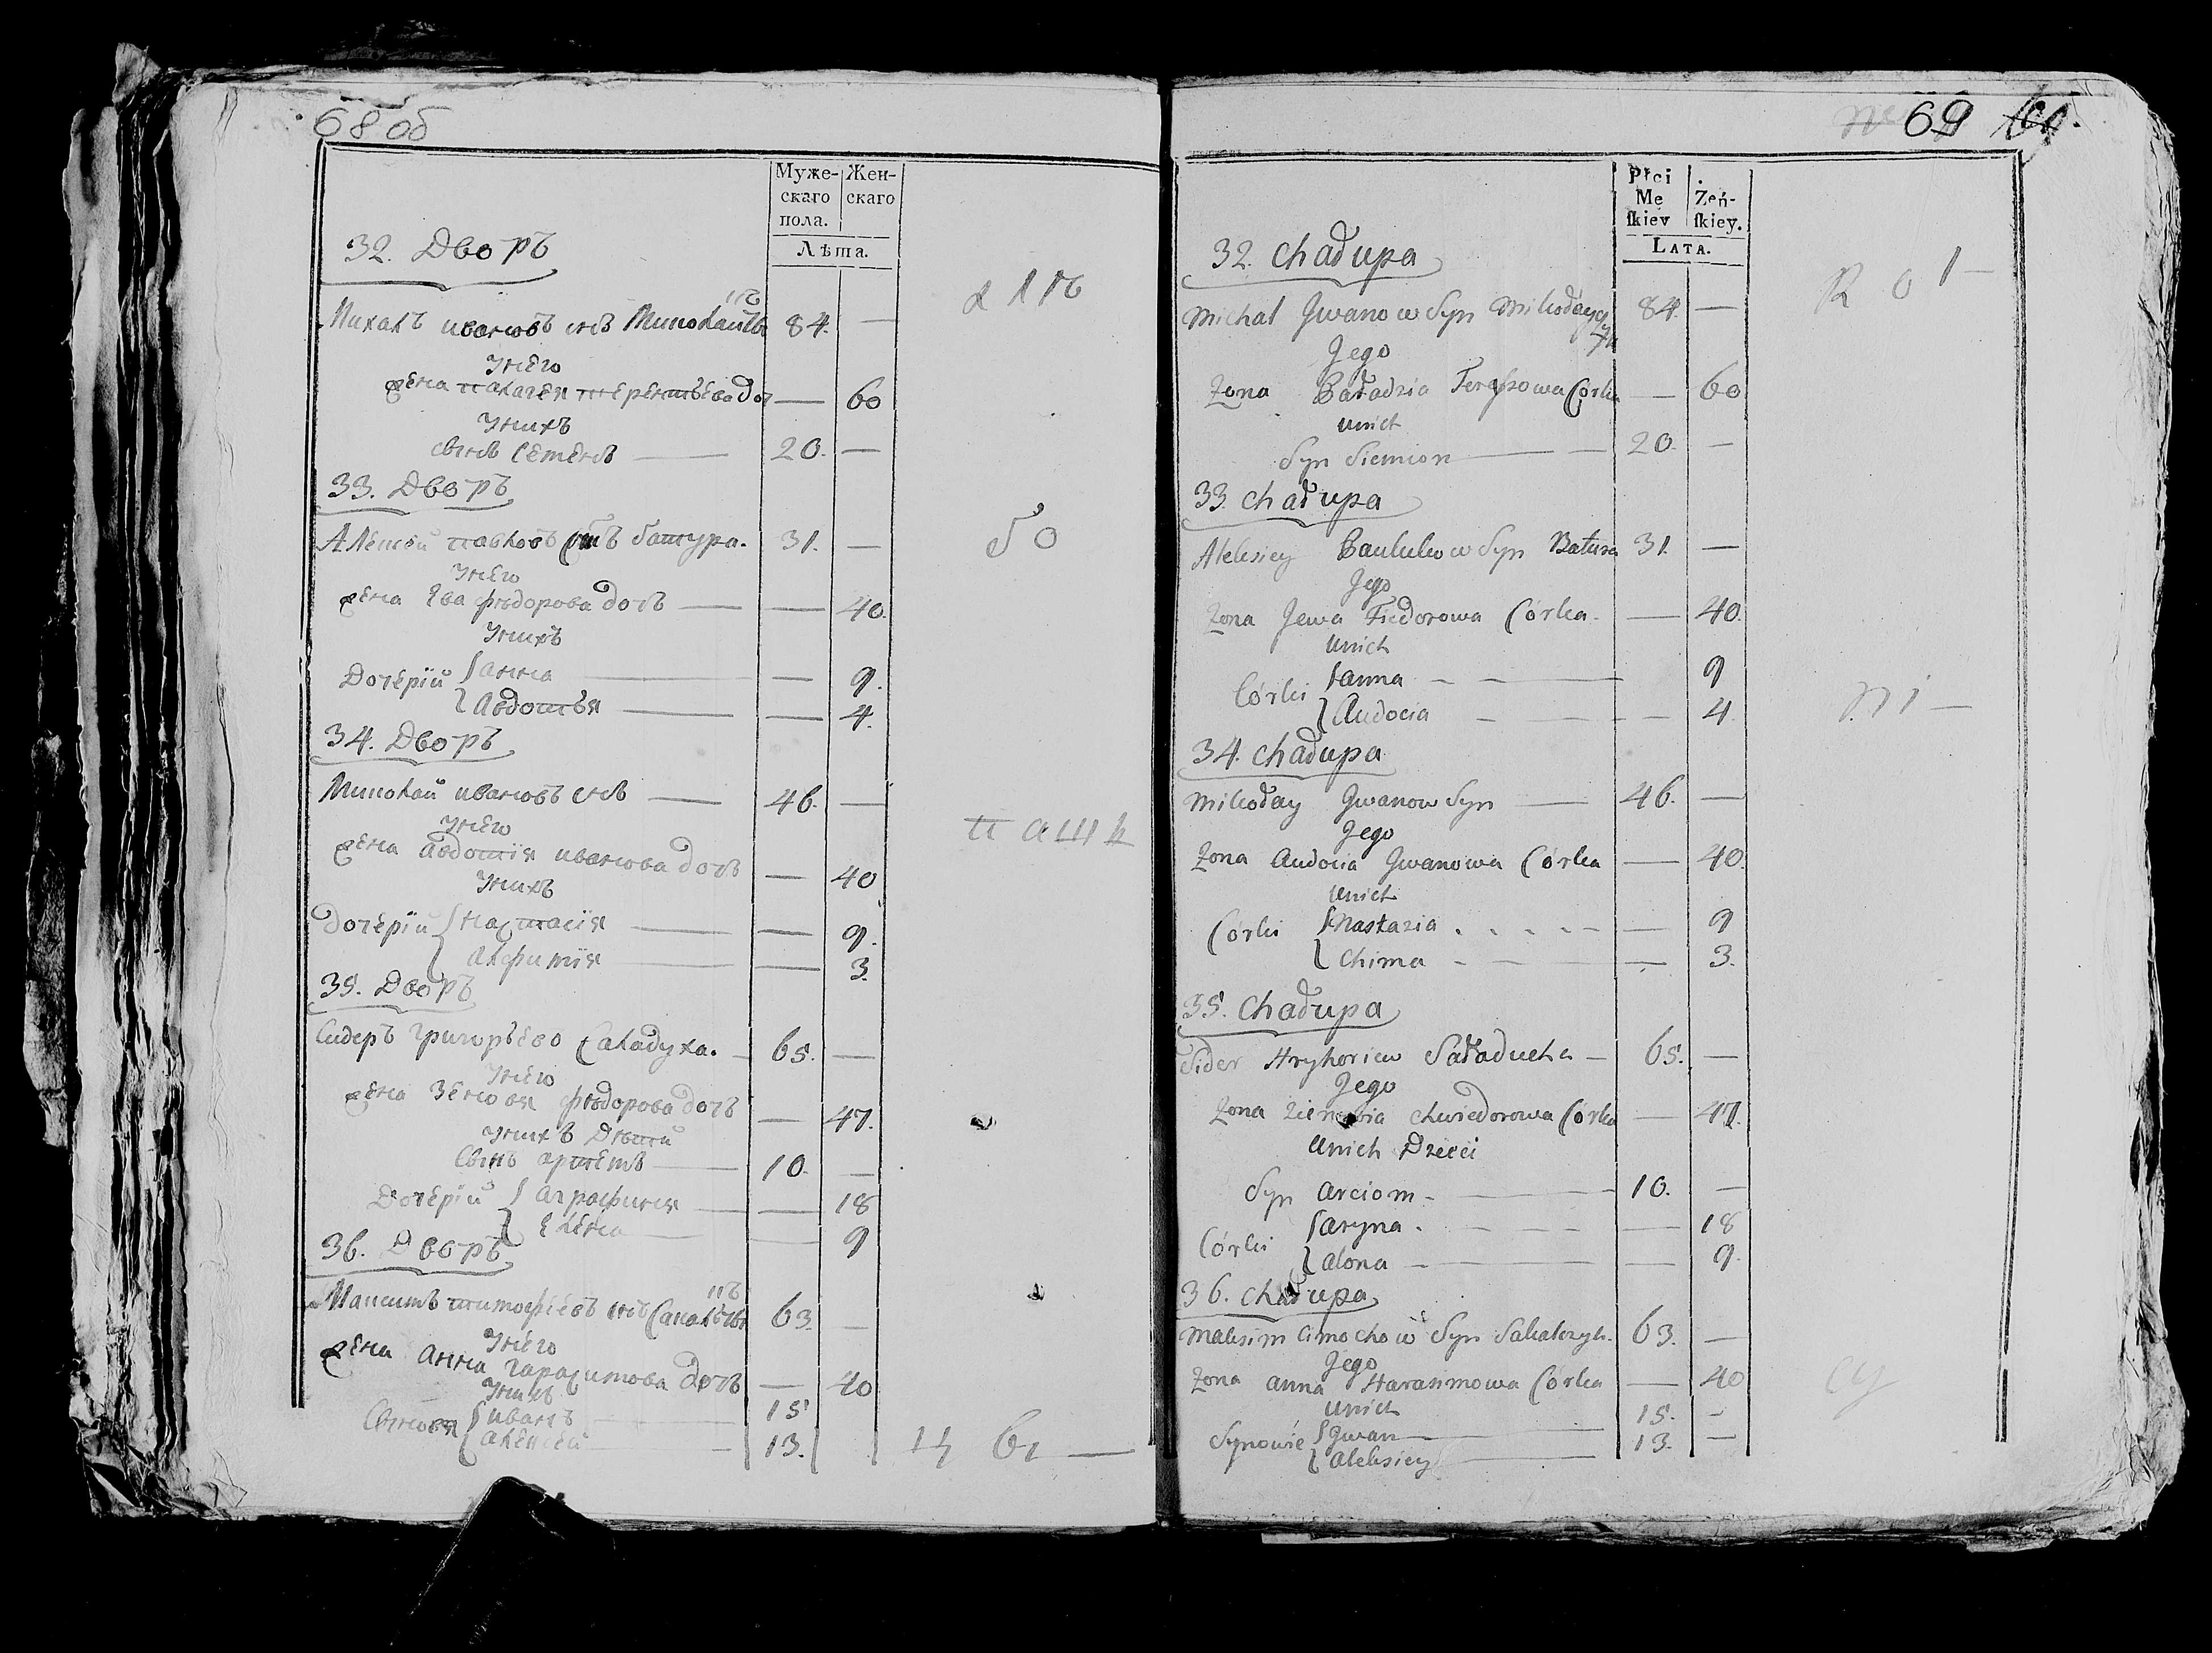 68 об
Муже-
скаго
пола.
Жен-
скаго
Лѣта.
32. Дворъ
Михалъ ивановъ снъ 84. —
унего
жена палагея терентьева доч — 60
унихъ
сынъ семенъ — 20. —
33. Дворъ
Алексей павловъ снъ батура. 31. —
унего
жена Ева фѣдорова дочь — — 40.
унихъ
Дочерїи анна — — 9.
авдотья — — 4.
34. Дворъ
Миколай ивановъ снъ — 46. —
унего
жена авдотїя иванова дочь — 40
унихъ
Дочерїи настасїя — — 9.
алфимїя — — 3.
35. Дворъ
Сидеръ григорьево саладуха. — 65. —
унего
жена Зеновя фѣдорова дочь — 47.
унихъ Дѣти
сынъ артемъ — 10. —
Дочерїи аграфиня — — 18
елена — — 9
36. Дворъ
Максимъ тимофѣевъ снъ 63. —
унего
жена Анна гарасимова дочь — 40
унихъ
сыновя иванъ — 15
алексей — 13.
69
Płci
Mę
skiey
Żeń-
skiey.
LATA.
32. Chałupa
Michał Jwanow Syn 84. —
Jego
Żona Paładzia Corka — 60
unich
Syn Siemion — — 20. —
33. Chałupa
Alexsiey Syn Batura 31. —
Jego
Żona Jewa Fiedorowa Córka. — 40.
unich
Córki anna — — 9
Audocia — — — 4.
34. Chałupa
Mikołay Jwanow Syn — 46. —
Jego
Żona Audocia Jwanowa Córka — 40.
unich
Córki Nastazia . . . . — — 9
Chima — — — 3.
35. Chałupa
Sider Hryhoriew Saładucha — 65. —
Jego
Żona Zienowia Chwiedorowa Córka — 47.
unich Dzieci
Syn Arciom — — 10. —
Córki aryna. — — — 18
alona — — — 9.
36. Chałupa
Maksim Cimochow Syn 63. —
Jego
Żona anna Harasimowa Córka — 40
unich
Synowie Jwan — 15. —
Aleksiey — 13. —